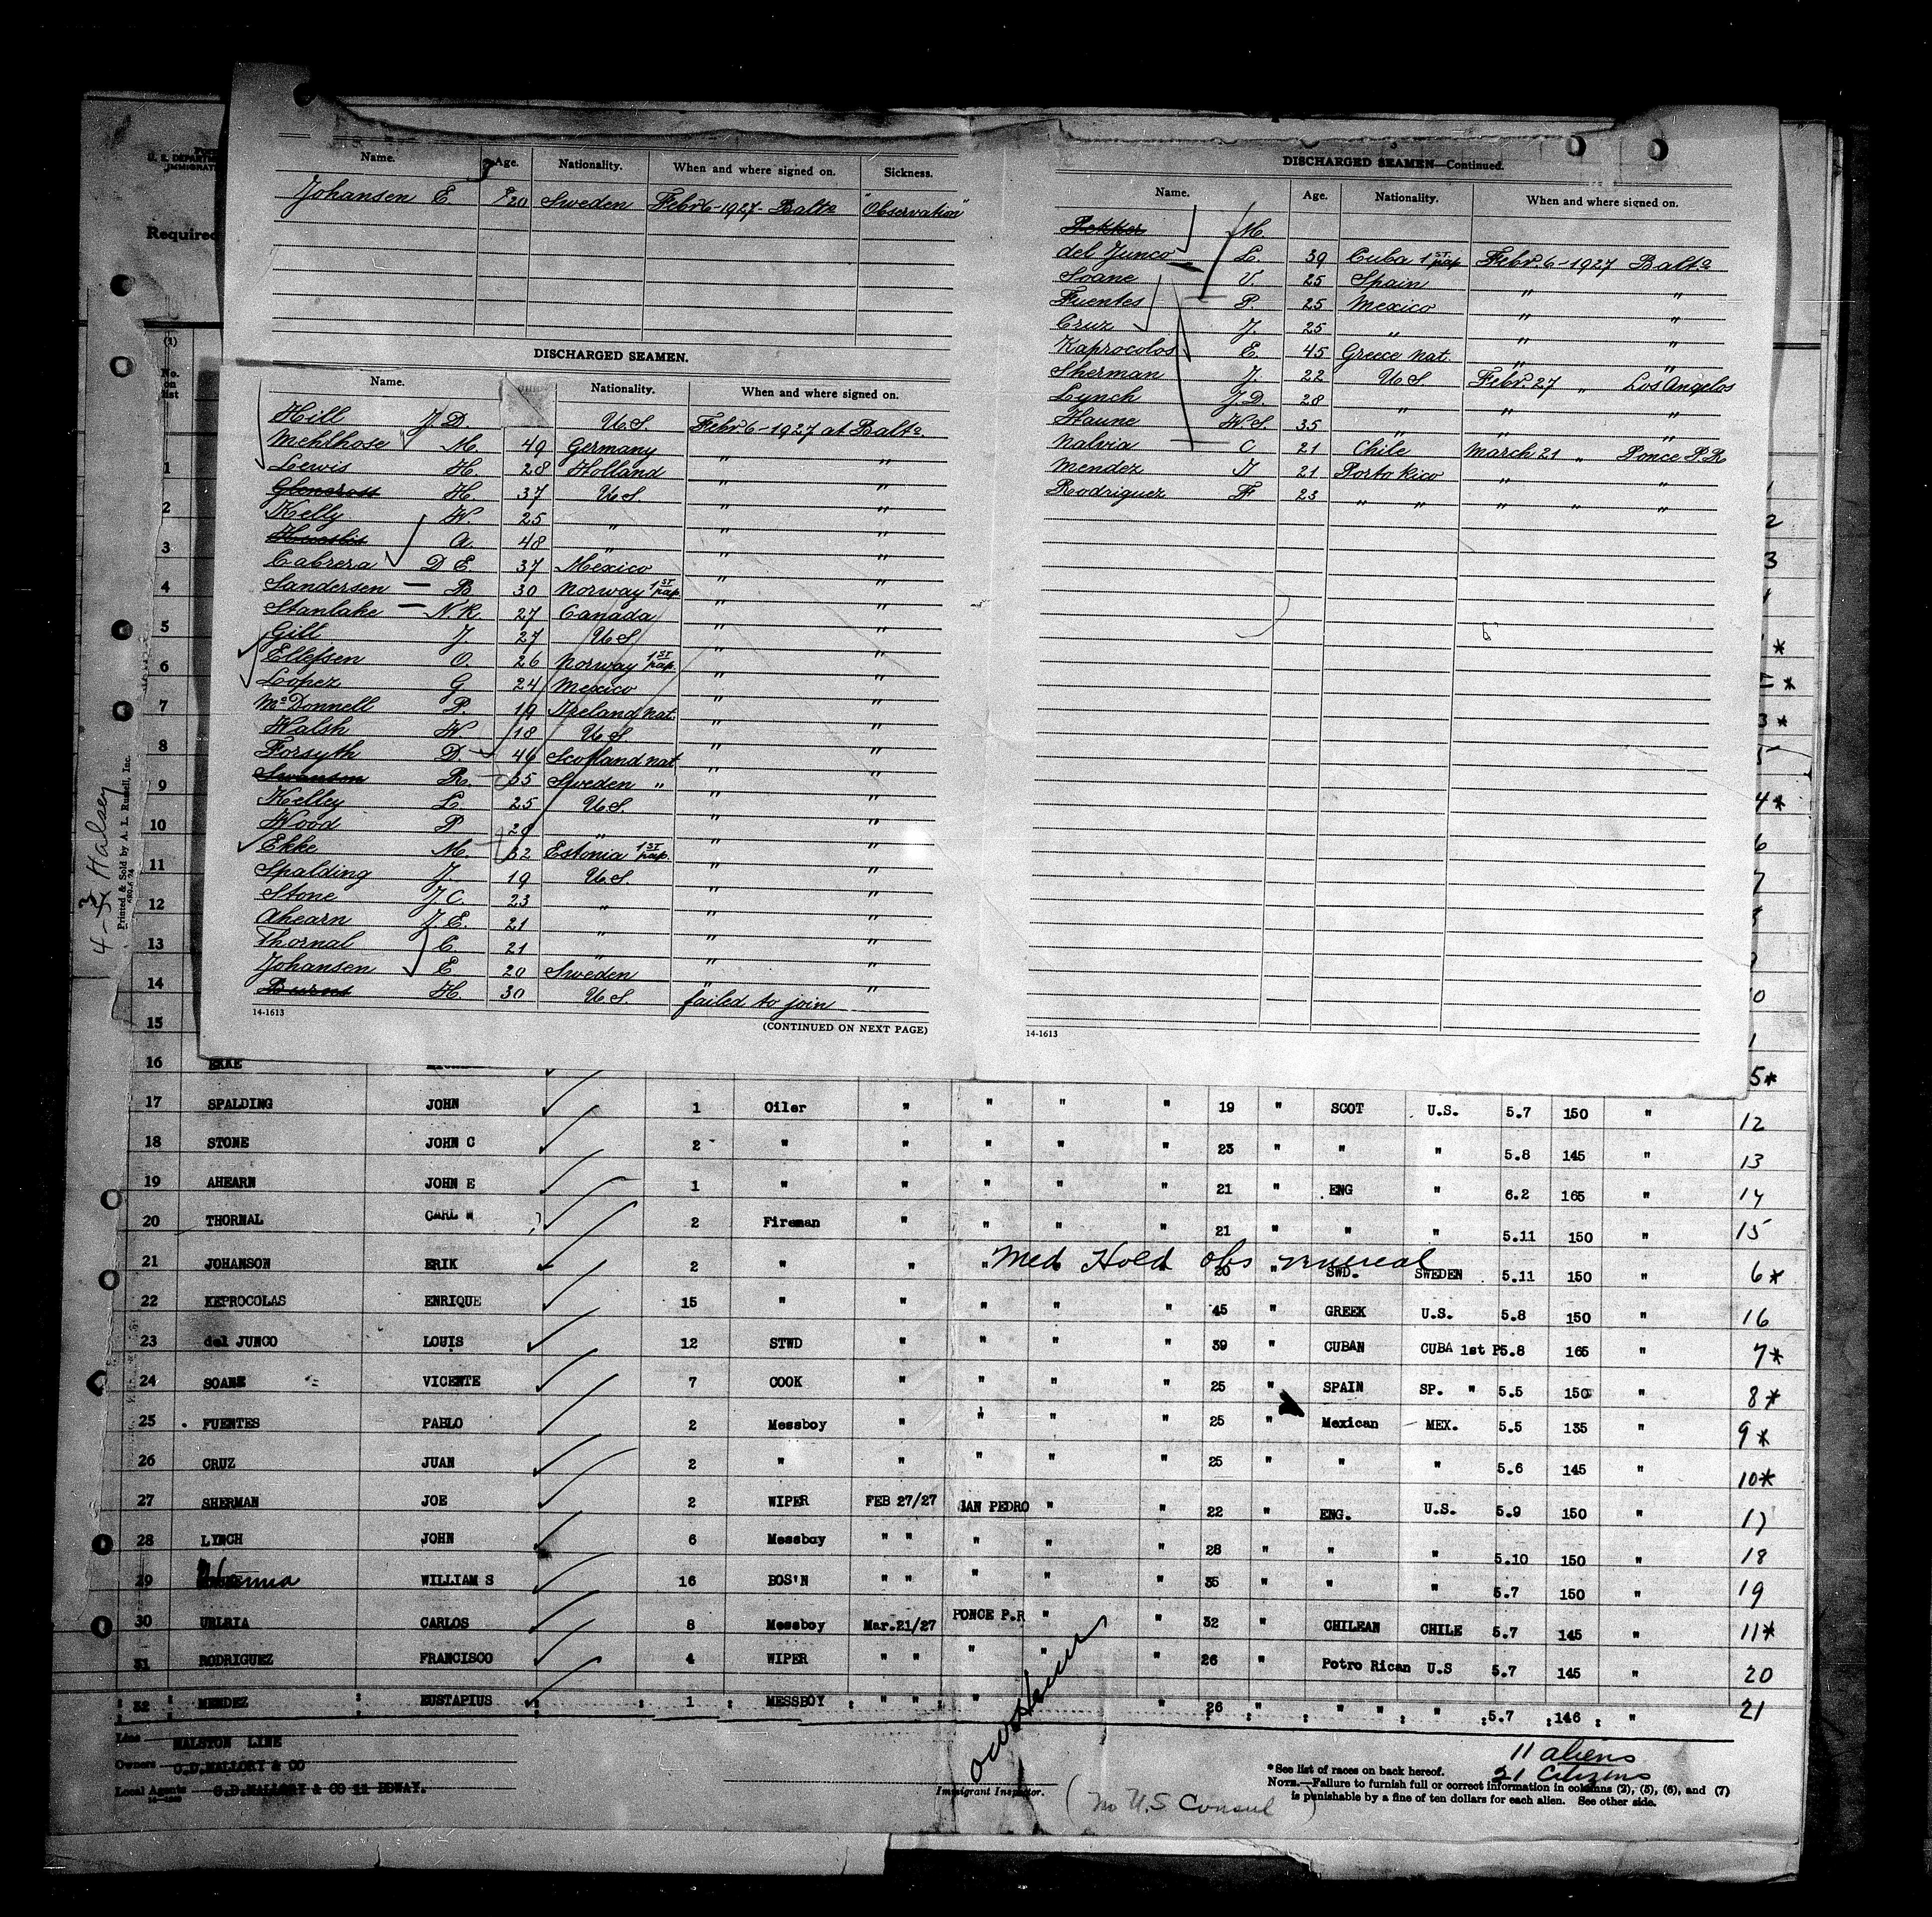 Name. Age. Nationality. When and where signed on. Sickness.
Johansen E. 20 Sweden Febr. 6-1927- Balto "Observation"
DISCHARGED SEAMEN.
Name. Nationality. When and where signed on.
Hill J D. U.S. Febr. 6-1927 at Balto.
Mehlhose M. 49 Germany " "
Lewis H. 28 Holland " "
Glencross H. 37 U S. " "
Kelly W. 25 " " "
A. 48 " " "
Cabrera D E. 37 Mexico " "
Sandersen B 30 Norway 1st pap. " "
Stanlake N.R. 27 Canada " "
Gill J. 27 U S. " "
Ellefsen O. 26 Norway 1st pap. " "
Lopez G 24 Mexico " "
McDonnell P. 19 Ireland nat. " "
Walsh W 18 U S. " "
Forsyth D. 46 Scotland nat " "
Swanson R. 35 Sweden " " "
Kelley L. 25 U.S. " "
Wood P 28 " " "
Ekke M. 32 Estonia 1st pap. " "
Spalding J 19 U.S. " "
Stone J C. 23 " " "
Ahearn J. E. 21 " " "
Thornal C. 21 " " "
Johansen E 20 Sweden " "
Burns H. 30 U S. failed to join
14-1613
(CONTINUED ON NEXT PAGE)
DISCHARGED SEAMEN—Continued.
Name. Age. Nationality. When and where signed on.
Bekker M.
del Junco L. 39 Cuba 1st pap Febr. 6-1927 Balto
Soane V. 25 Spain " "
Fuentes P. 25 Mexico " "
Cruz J. 25 " " "
Kaprocolos E. 45 Greece nat. " "
Sherman J. 22 U S Febr. 27 " Los Angelos
Lynch J D. 28 " " "
Haune W S. 35 " " "
Nalvia C 21 Chile March 21 " Ponce P.R
Mendez J 21 Porto Rico " "
Rodriguez F 23 " " " " "
14-1613
Required
(1)
No. on list
1
2
3
4
5
6
7
8
9
10
11
12
13
14
15
4-3 Halsey
Printed & Sold by A. L. Russell, Inc.
16 EKKE 5*
17 SPALDING JOHN 1 Oiler " " " " 19 " SCOT U.S. 5.7 150 " 12
18 STONE JOHN C 2 " " " " " 23 " " " 5.8 145 " 13
19 AHEARN JOHN E 1 " " " " " 21 " ENG " 6.2 165 " 14
20 THORNAL CARL W 2 Fireman " " " " 21 " " " 5.11 150 " 15
Med Hold obs
21 JOHANSON ERIK 2 " " " " " 20 " SWD. SWEDEN 5.11 150 " 6*
22 KEPROCOLAS ENRIQUE 15 " " " " " 45 " GREEK U.S. 5.8 150 " 16
23 del JUNCO LOUIS 12 STWD " " " " 39 " CUBAN CUBA 1st P 5.8 165 " 7*
24 SOANE VICENTE 7 COOK " " " " 25 " SPAIN SP. " 5.5 150 " 8*
25 FUENTES PABLO 2 Messboy " " " " 25 " Mexican MEX. 5.5 135 " 9*
26 CRUZ JUAN 2 " " " " " 25 " " " 5.6 145 " 10*
27 SHERMAN JOE 2 WIPER FEB 27/27 SAN PEDRO " " 22 " ENG. U.S. 5.9 150 " 17
28 LYNCH JOHN 6 Messboy " " " " " 28 " " " 5.10 150 " 18
29 WILLIAM S 16 BOS'N " " " " " 35 " " " 5.7 150 " 19
30 URLRIA CARLOS 8 Messboy Mar.21/27 PONCE P.R " " 32 " CHILEAN CHILE 5.7 145 " 11*
31 RODRIGUEZ FRANCISCO 4 WIPER " " " " " 26 " Potro Rican U.S 5.7 145 " 20
32 MENDEZ EUSTAPIUS 1 MESSBOY " " " " 26 " " " " 5.7 146 " 21
Line MALSTON LINE
Owners C.D.MALLORY & CO
Local Agents C.D.MALLORY & CO 11 BDWAY.
Immigrant Inspector.
(no U.S Consul)
11 aliens
21 Citizens
*See list of races on back hereof.
NOTE.—Failure to furnish full or correct information in columns (2), (5), (6), and (7)
is punishable by a fine of ten dollars for each alien. See other side.